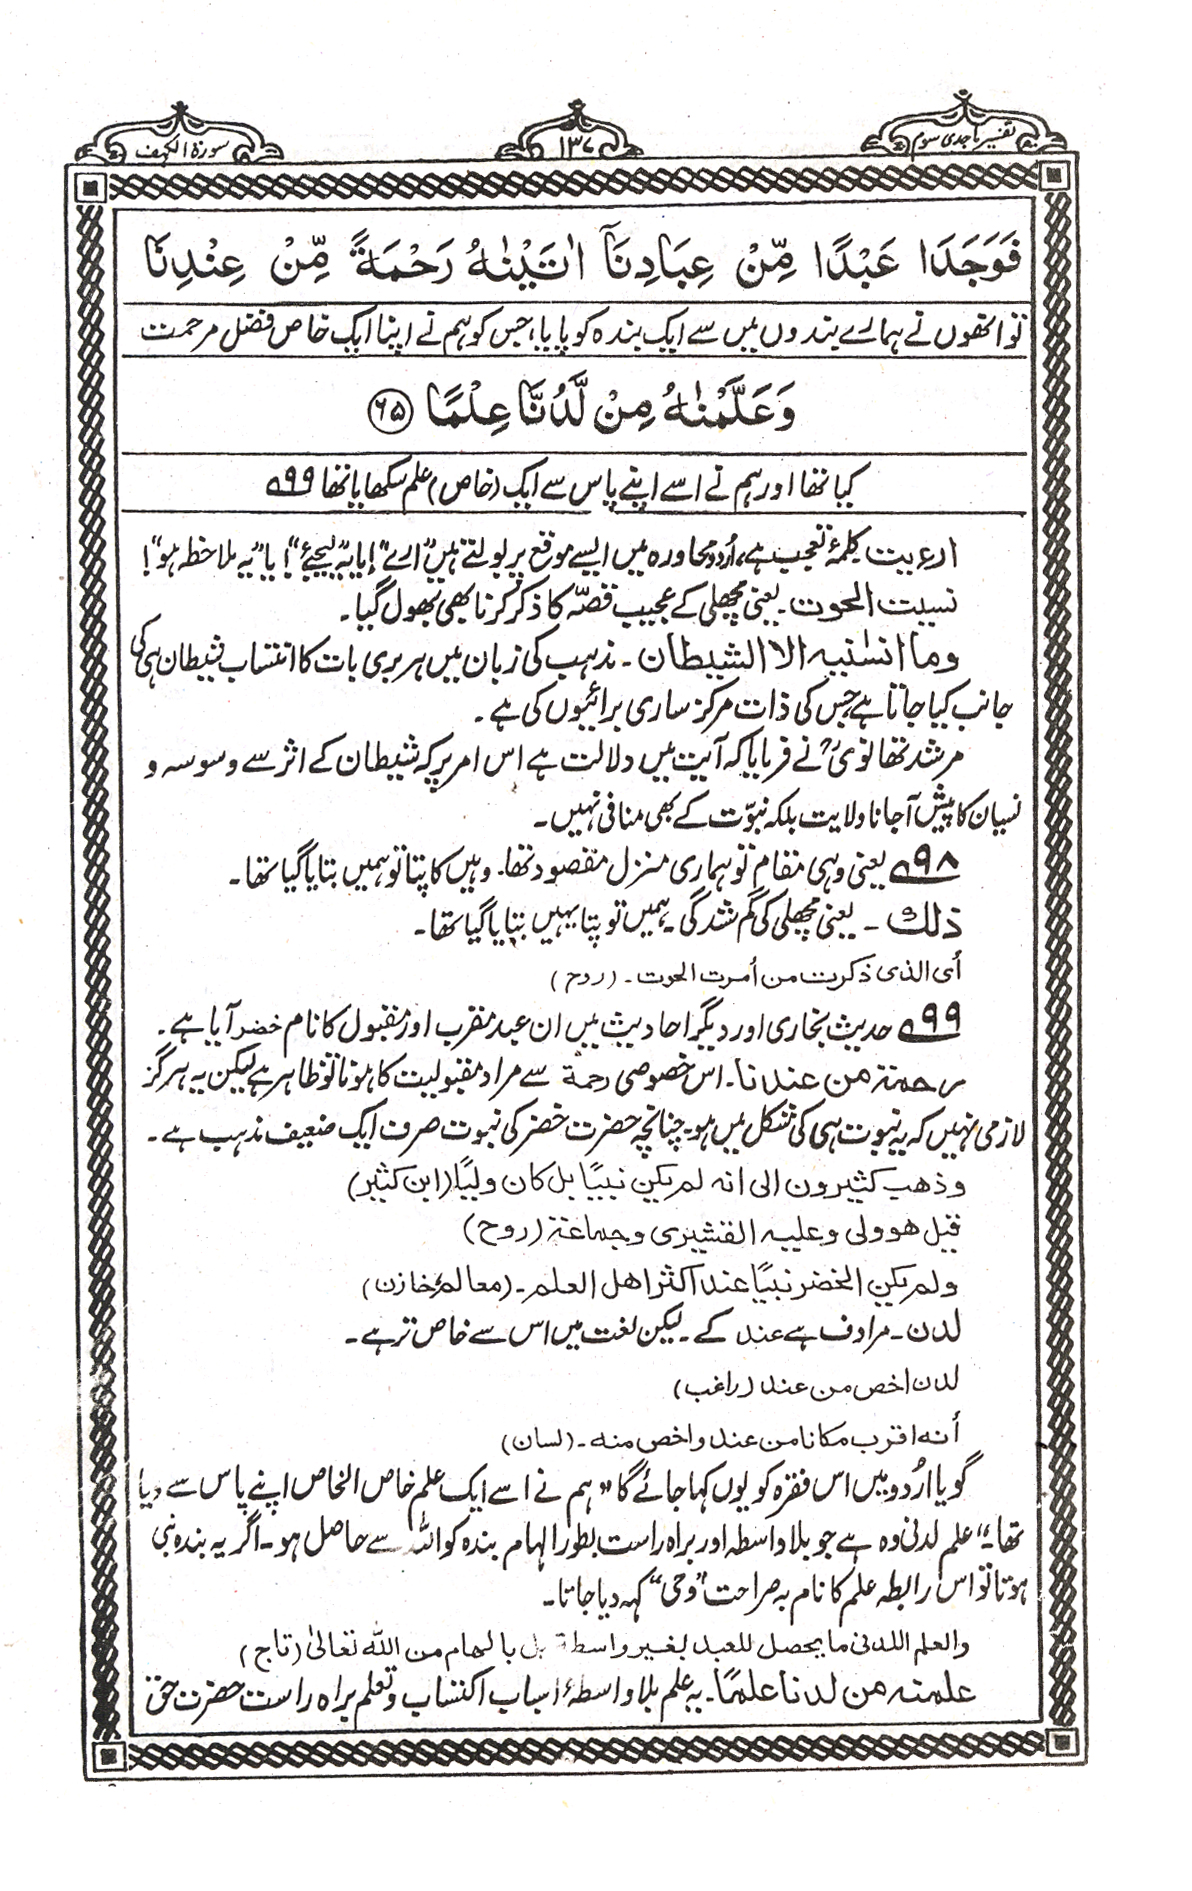 تفسیر ماجدی سوم
۱۳۷
سورۃ الکہف
فَوَجَدَا عَبْدًا مِّنْ عِبَادِنَآ اٰتَيْنٰهُ رَحْمَةً مِّنْ عِنْدِنَا
تو انھوں نے ہمارے بندوں میں سے ایک بندہ کو پایا، جس کو ہم نے اپنا ایک خاص فضل مرحمت
وَعَلَّمْنٰهُ مِنْ لَّدُنَّا عِلْمًا ۶۵
کیا تھا اور ہم نے اسے اپنے پاس سے ایک (خاص) علم سکھایا تھا ۹۹؎
ارءیت کلمۂ تعجب ہے، اُردو محاورہ میں ایسے موقع پر بولتے ہیں ”ارے“! یا ”یہ لیجئے“! یا ”یہ ملاحظہ ہو“!
نسیت الحوت۔ یعنی مچھلی کے عجیب قصّہ کا ذکر کرنا بھی بھول گیا۔
وما انسٰنیہ الا الشیطان۔ مذہب کی زبان میں ہر بری بات کا انتساب شیطان ہی کی
جانب کیا جاتا ہے جس کی ذات مرکز ساری برائیوں کی ہے۔
مرشد تھانویؒ نے فرمایا کہ آیت میں دلالت ہے اس امر پر کہ شیطان کے اثر سے وسوسہ و
نسیان کا پیش آجانا ولایت بلکہ نبوّت کے بھی منافی نہیں۔
۹۸؎ یعنی وہی مقام تو ہماری منزل مقصود تھا۔ وہیں کا پتا تو ہمیں بتایا گیا تھا۔
ذٰلک۔ یعنی مچھلی کی گم شدگی۔ ہمیں تو پتا یہیں بتایا گیا تھا۔
أی الذی ذکرت من أمرت الحوت۔ (روح)
۹۹؎ حدیث بخاری اور دیگر احادیث میں ان عبد مقرب اور مقبول کا نام خضر آیا ہے۔
رحمۃ من عندنا۔ اس خصوصی رحمۃ سے مراد مقبولیت کا ہونا تو ظاہر ہے لیکن یہ ہرگز
لازمی نہیں کہ یہ نبوت ہی کی شکل میں ہو۔ چنانچہ حضرت خضر کی نبوت صرف ایک ضعیف مذہب ہے۔
وذھب کثیرون الی انہ لم یکن نبیًا بل کان ولیًا (ابن کثیر)
قیل ھو ولی وعلیہ القشیری وجماعۃ (روح)
ولم یکن الخضر نبیًا عند اکثر اھل العلم۔ (معالم، خازن)
لدن۔ مرادف ہے عند کے۔ لیکن لغت میں اس سے خاص تر ہے۔
لدن اخص من عند (راغب)
أنہ اقرب مکانا من عند واخص منہ۔ (لسان)
گویا اردو میں اس فقرہ کو یوں کہا جائے گا ”ہم نے اسے ایک علم خاص الخاص اپنے پاس سے دیا
تھا۔“ علم لدنی وہ ہے جو بلا واسطہ اور براہ راست بطور الہام بندہ کو اللہ سے حاصل ہو۔ اگر یہ بندہ نبی
ہوتا تو اس رابطہ علم کا نام بہ صراحت ”وحی“ کہہ دیا جاتا۔
والعلم اللدنی ما یحصل للعبد لغیر واسطۃ بل بالھام من اللہ تعالیٰ (تاج)
علمنہ من لدنا علمًا۔ یہ علم بلا واسطۂ اسباب اکتساب و تعلم براہ راست حضرت حق